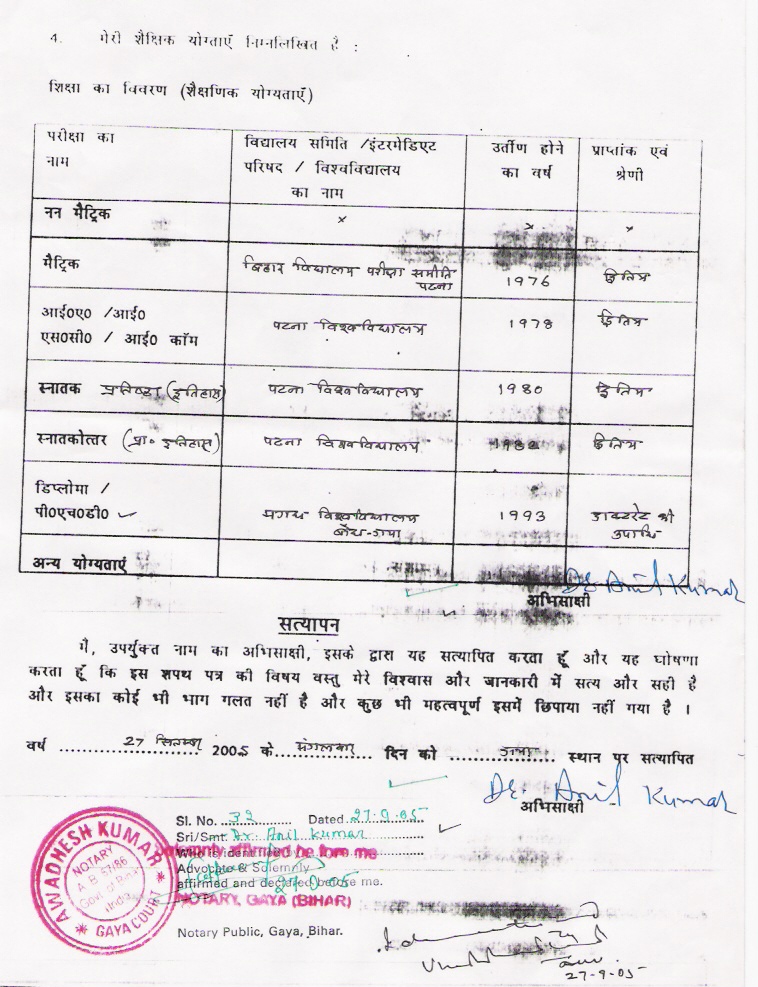 4. मेरी शैक्षिक योग्ताएँ निम्नलिखित है :
शिक्षा का विवरण (शैक्षणिक योग्यताएँ)
परीक्षा का नाम
विद्यालय समिति /इंटरमेडिएट परिषद / विश्वविद्यालय का नाम
उर्तीण होने का वर्ष
प्राप्तांक एवं श्रेणी
नन मैट्रिक x x x
मैट्रिक बिहार विद्यालय परीक्षा समीति पटना 1976 द्वितिय
आई०ए० /आई० एस०सी० / आई० कॉम पटना विश्वविद्यालय 1978 द्वितिय
स्नातक प्रतिष्ठा (इतिहास) पटना विश्वविद्यालय 1980 द्वितिय
स्नातकोत्तर (प्रा० इतिहास) पटना विश्वविद्यालय द्वितिय
डिप्लोमा / पी०एच०डी० ✓ मगध विश्वविद्यालय बोध-गया 1993 डाक्टरेट की उपाधि
अन्य योग्यताएं
Dr. Anil Kumar
अभिसाक्षी
सत्यापन
मै, उपर्युक्त नाम का अभिसाक्षी, इसके द्वारा यह सत्यापित करता हूँ और यह घोषणा
करता हूँ कि इस शपथ पत्र की विषय वस्तु मेरे विश्वास और जानकारी में सत्य और सही है
और इसका कोई भी भाग गलत नहीं है और कुछ भी महत्वपूर्ण इसमें छिपाया नहीं गया है ।
वर्ष 27 सितम्बर 2005 के मंगलवार दिन को गया स्थान पर सत्यापित
Dr. Anil Kumar
अभिसाक्षी
Sl. No. 32 Dated 27.9.05
Sri/Smt. Dr. Anil Kumar
Who is identified by
Solemnly affirmed before me
Advocate & Solemnly
affirmed and declared before me.
27-9-05
NOTARY, GAYA (BIHAR)
Notary Public, Gaya, Bihar.
AWADHESH KUMAR
NOTARY
GAYA COURT
27-9-05